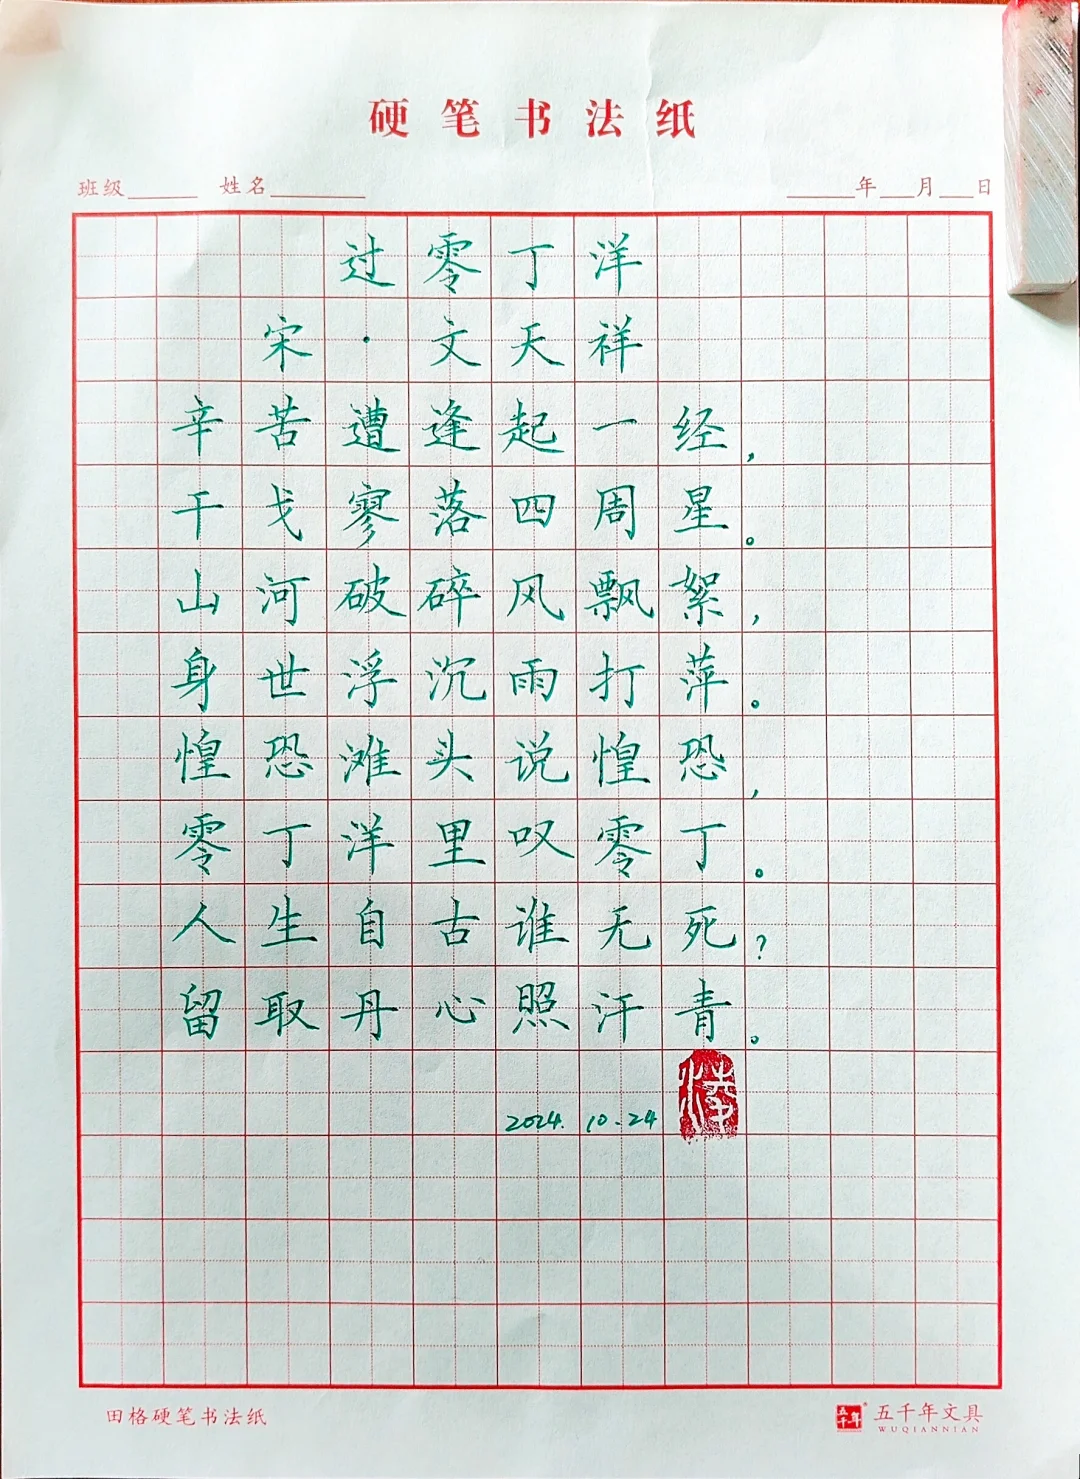 硬笔书法纸
班级 姓名 年 月 日
过零丁洋
宋·文天祥
辛苦遭逢起一经，
干戈寥落四周星。
山河破碎风飘絮，
身世浮沉雨打萍。
惶恐滩头说惶恐，
零丁洋里叹零丁。
人生自古谁无死？
留取丹心照汗青。
2024.10.24
田格硬笔书法纸
五千年 五千年文具
WUQIANNIAN